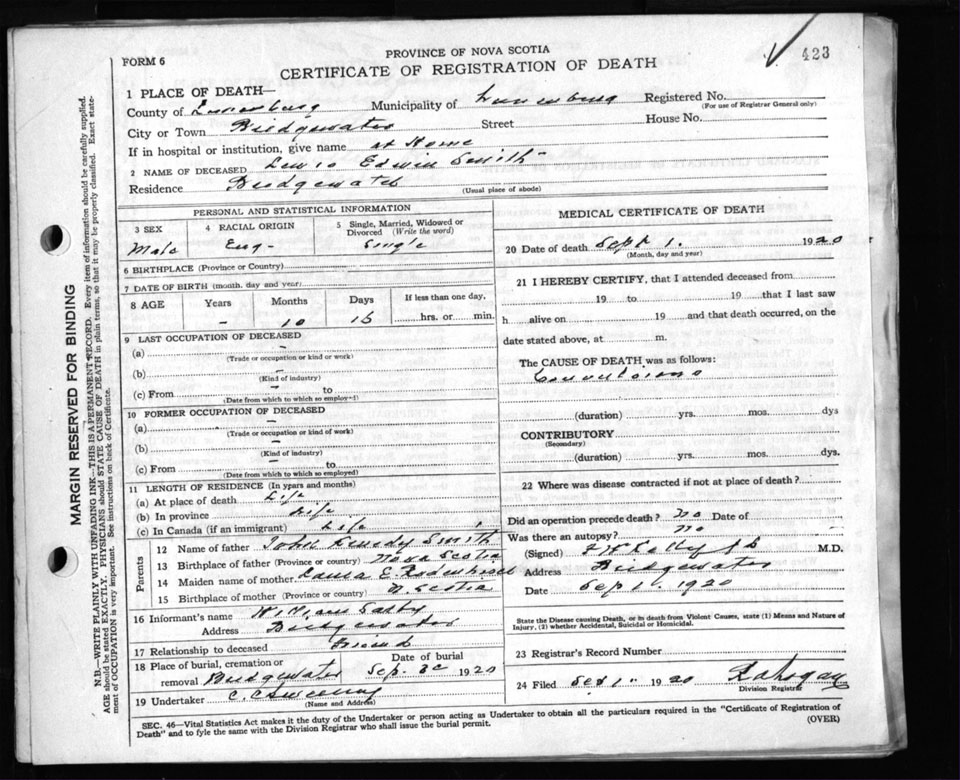 423
PROVINCE OF NOVA SCOTIA
FORM 6
CERTIFICATE OF REGISTRATION OF DEATH
1 PLACE OF DEATH—
County of Lunenburg Municipality of Lunenburg Registered No.
(For use of Registrar General only)
City or Town Bridgewater Street House No.
If in hospital or institution, give name at Home
2 NAME OF DECEASED Lewis Edwin Smith
Residence Bridgewater (Usual place of abode)
PERSONAL AND STATISTICAL INFORMATION
3 SEX 4 RACIAL ORIGIN 5 Single, Married, Widowed or
Divorced (Write the word)
Male Eng- Single
6 BIRTHPLACE (Province or Country)
7 DATE OF BIRTH (month, day and year)
8 AGE Years Months Days If less than one day,
– 10 hrs. or min.
9 LAST OCCUPATION OF DECEASED
(a) –
(Trade or occupation or kind or work)
(b) –
(Kind of industry)
(c) From – to
(Date from which to which so employed)
10 FORMER OCCUPATION OF DECEASED
(a) –
(Trade or occupation or kind of work)
(b) –
(Kind of industry)
(c) From – to
(Date from which to which so employed)
11 LENGTH OF RESIDENCE (In years and months)
(a) At place of death Life
(b) In province Life
(c) In Canada (if an immigrant) Life
Parents
12 Name of father John Smith
13 Birthplace of father (Province or country) Nova Scotia
14 Maiden name of mother E
15 Birthplace of mother (Province or country) N. Scotia
16 Informant's name William
Address Bridgewater
17 Relationship to deceased Friend
18 Place of burial, cremation or Date of burial
removal Bridgewater Sep. 1920
19 Undertaker
(Name and Address)
MEDICAL CERTIFICATE OF DEATH
20 Date of death Sept 1. 1920
(Month, day and year)
21 I HEREBY CERTIFY, that I attended deceased from
19 to 19 that I last saw
h alive on 19 and that death occurred, on the
date stated above, at m.
The CAUSE OF DEATH was as follows:
Convulsions
(duration) yrs. mos. dys
CONTRIBUTORY
(Secondary)
(duration) yrs. mos. dys.
22 Where was disease contracted if not at place of death?
Did an operation precede death? No Date of
Was there an autopsy? No
(Signed) M.D.
Address Bridgewater
Date Sep 1. 1920
State the Disease causing Death, or in death from Violent Causes, state (1) Means and Nature of
Injury, (2) whether Accidental, Suicidal or Homicidal.
23 Registrar's Record Number
24 Filed Sept 1. 1920
Division Registrar
SEC. 46—Vital Statistics Act makes it the duty of the Undertaker or person acting as Undertaker to obtain all the particulars required in the "Certificate of Registration of
Death" and to fyle the same with the Division Registrar who shall issue the burial permit.
(OVER)
MARGIN RESERVED FOR BINDING
N.B.—WRITE PLAINLY WITH UNFADING INK—THIS IS A PERMANENT RECORD. Every item of information should be carefully supplied.
AGE should be stated EXACTLY. PHYSICIANS should STATE CAUSE OF DEATH in plain terms, so that it may be properly classified. Exact state-
ment of OCCUPATION is very important. See instructions on back of Certificate.